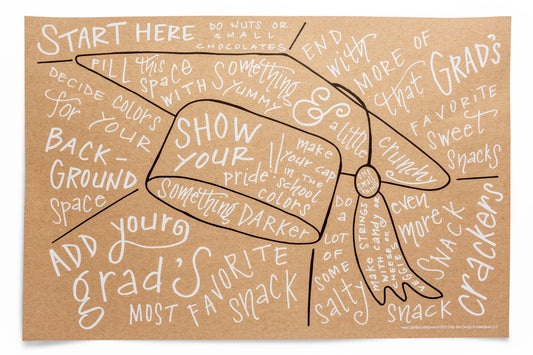 START HERE
DO NUTS OR
SMALL
CHOCOLATES
END
with
MORE OF
that GRAD'S
FAVORITE
sweet
SNACKS
DECIDE COLORS
for YOUR
BACK-
GROUND
space
FILL this
SPACE
WITH SOMEthing
YUMMY
&
a little
crunchy
SHOW
YOUR
pride!!
make
YOUR CAP
IN THE
school
COLORS
SOMEthing DARKER
ADD your
grad's
MOST FAVORITE
snack
DO
A
LOT
OF
SOME
Salty
make STRINGS
WITH candy OR
CHEESE OR
VEGGIES
even
MORE
SNACK
crackers
SNACK